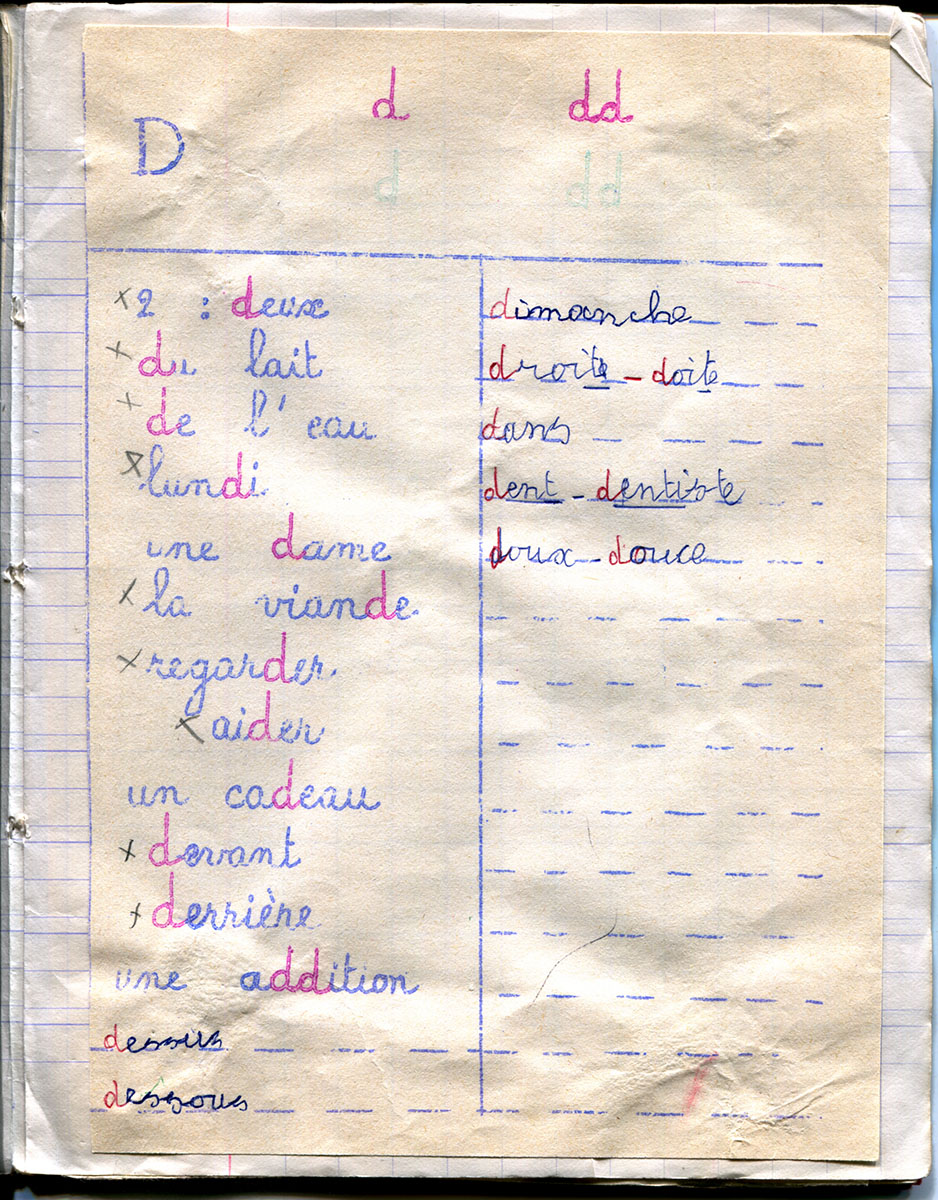 d dd
D
2 : deux
du lait
de l'eau
lundi
une dame
la viande
regarder
aider
un cadeau
devant
derrière
une addition
dessus
dessous
dimanche
droite - doite
dans
dent - dentiste
doux - douce